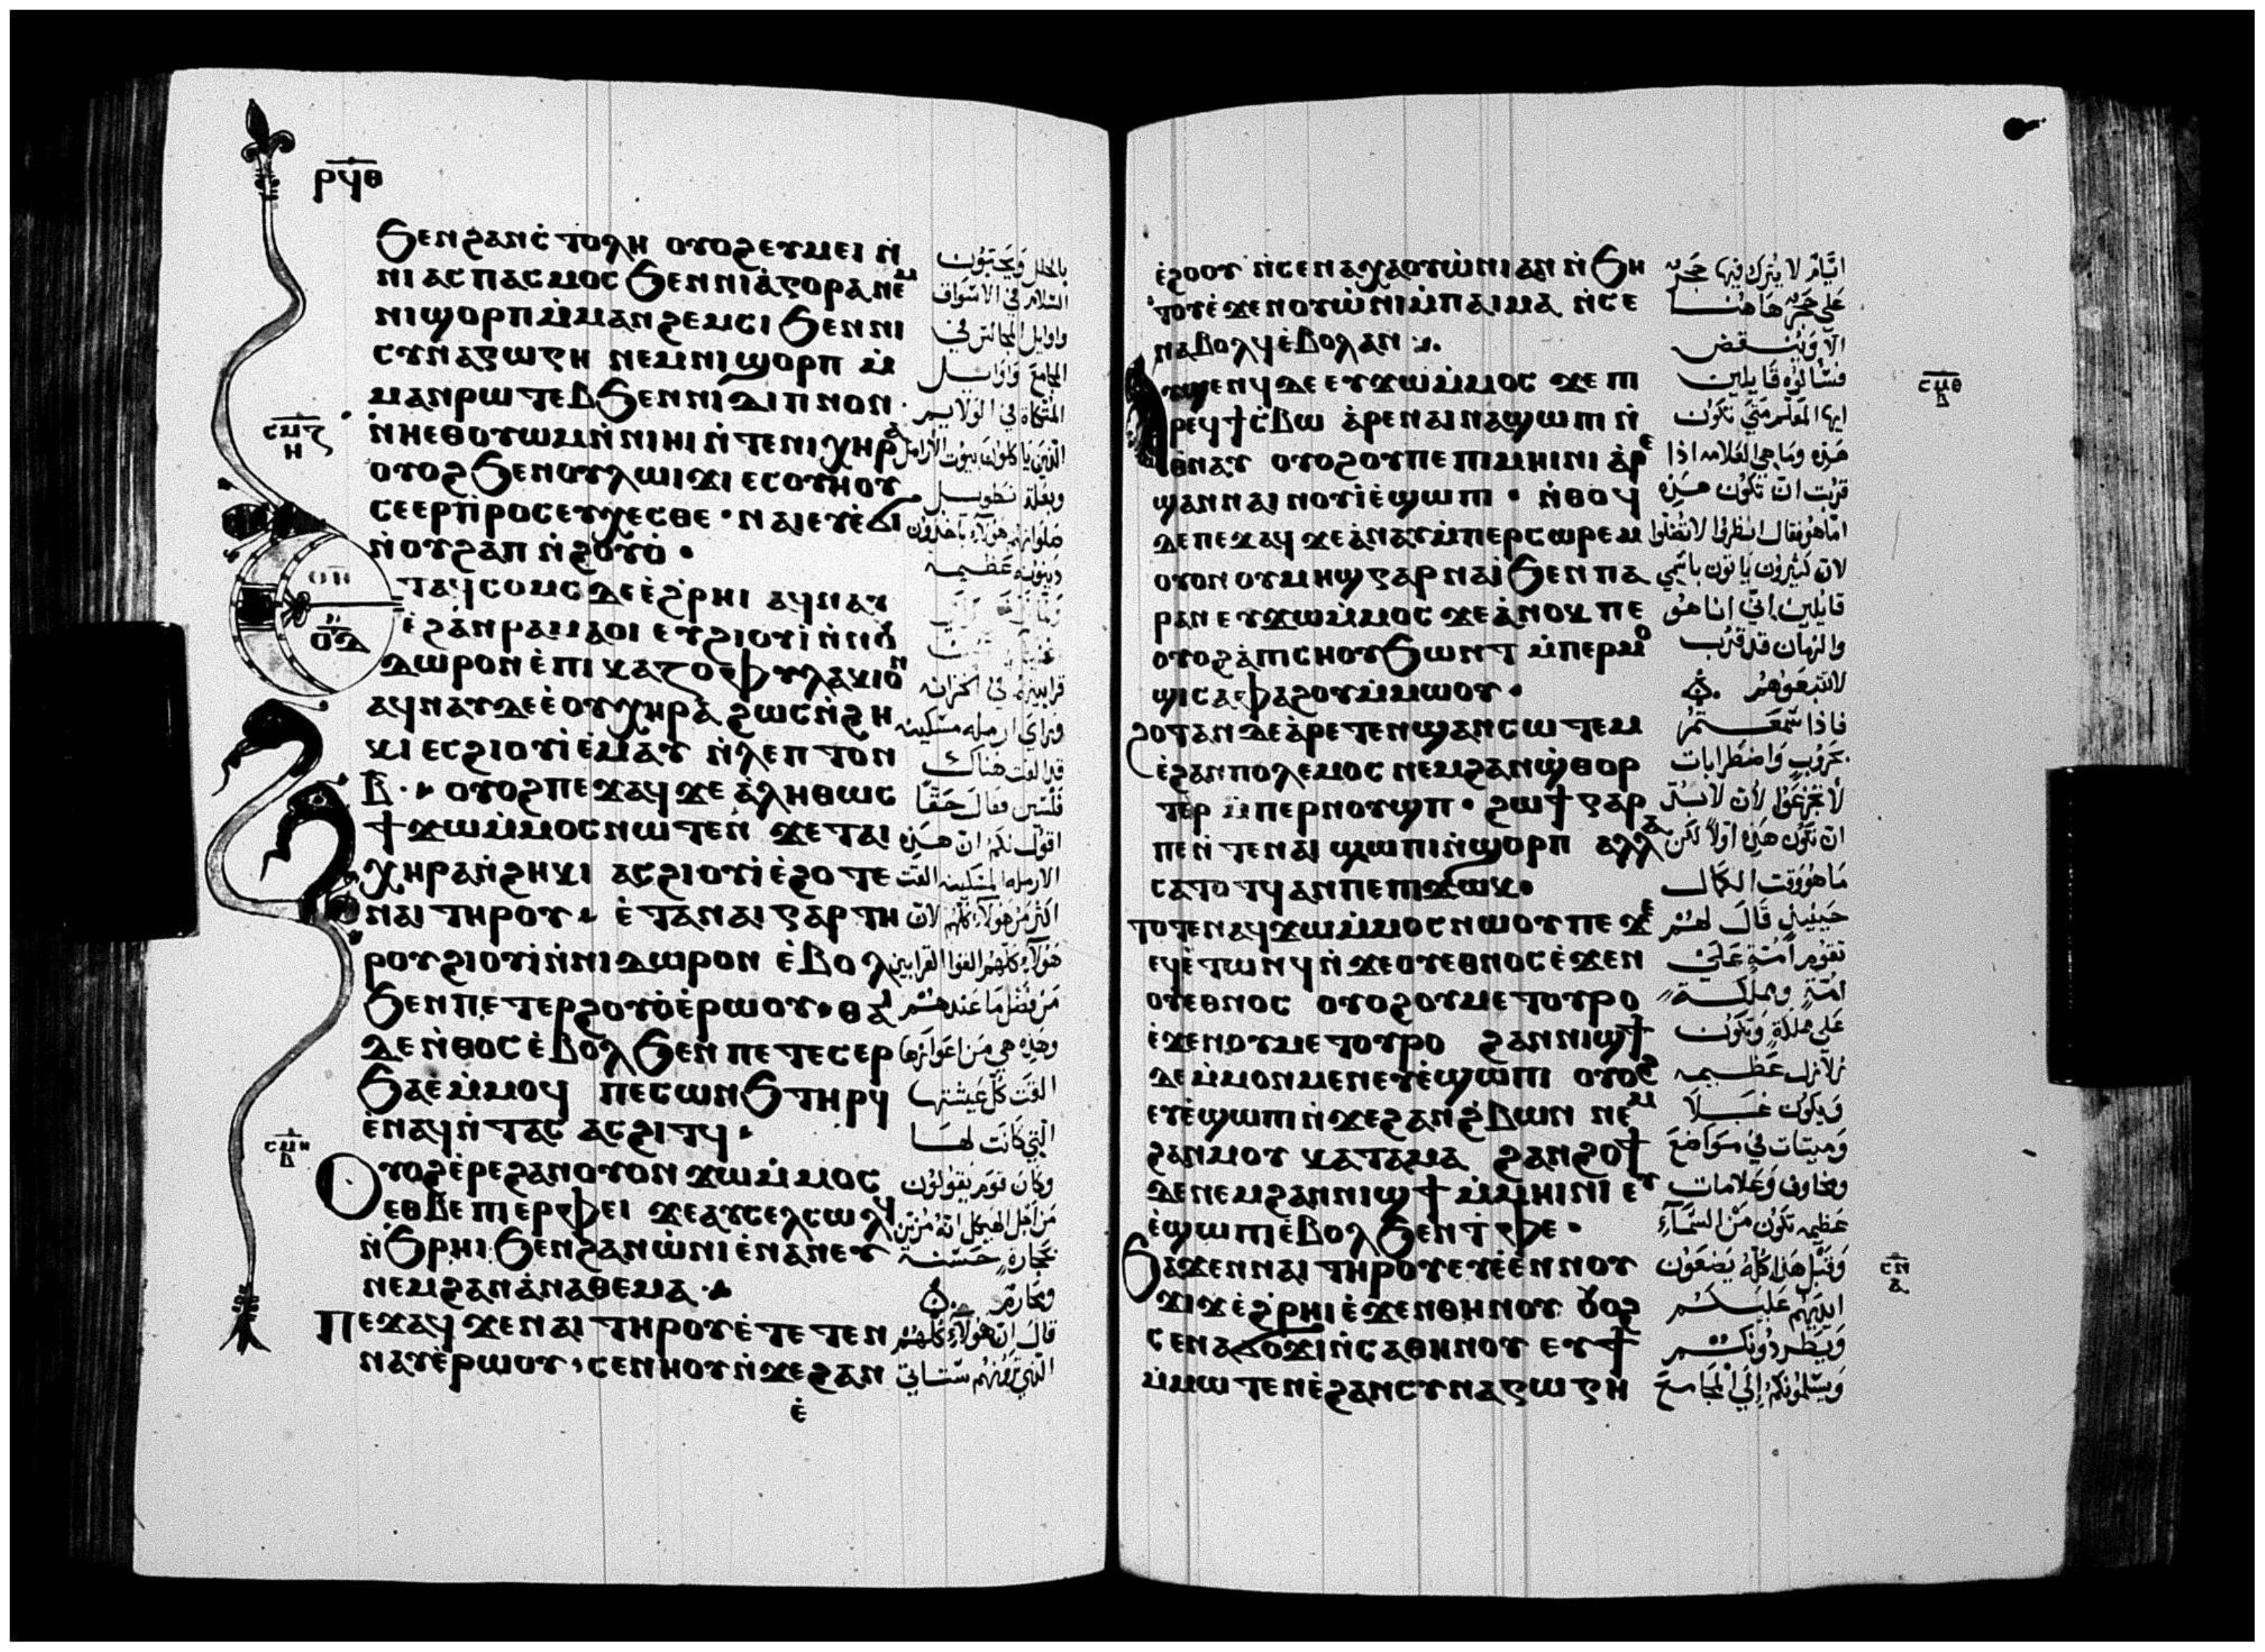 ⲣϥⲑ
ϧⲉⲛϩⲁⲛⲥ̀ⲧⲟⲗⲏ ⲟⲩⲟϩⲉⲩⲙⲉⲓ ⲛ̀
ⲛⲓⲁⲥⲡⲁⲥⲙⲟⲥ ϧⲉⲛⲛⲓⲁ̀ⲅⲟⲣⲁ ⲛⲉⲙ
ⲛⲓϣⲟⲣⲡⲙ̀ⲙⲁⲛϩⲉⲙⲥⲓ ϧⲉⲛⲛⲓ
ⲥⲩⲛⲁⲅⲱⲅⲏ ⲛⲉⲙⲛⲓϣⲟⲣⲡ ⲙ̀
ⲙⲁⲛⲣⲱⲧⲉⲃ ϧⲉⲛⲛⲓⲇⲓⲡⲛⲟⲛ ·
ⲛ̀ⲏⲉⲑⲟⲩⲱⲙⲛ̀ⲛⲓⲏⲓ ⲛ̀ⲧⲉⲛⲓⲭⲏⲣⲁ
ⲟⲩⲟϩ ϧⲉⲛⲟⲩⲗⲱⲓϫⲓ ⲉⲥⲟⲩⲏⲟⲩ
ⲥⲉⲉⲣⲡⲣⲟⲥⲉⲩⲭⲉⲥⲑⲉ · ⲛⲁⲓⲉⲩⲉ̀ϭⲓ
ⲛ̀ⲟⲩϩⲁⲡ ⲛ̀ϩⲟⲩⲟ̀ ·
ⲧⲁϥⲥⲟⲙⲥ ⲇⲉⲉ̀ϩⲣⲏⲓ ⲁϥⲛⲁⲩ
ⲉ̀ϩⲁⲛⲣⲁⲙⲁⲟⲓ ⲉⲩϩⲓⲟⲩⲓ̀ ⲛ̀ⲛⲟⲩ
ⲇⲱⲣⲟⲛ ⲉ̀ⲡⲓⲅⲁⲍⲟⲫⲩⲗⲁⲕⲓⲟⲛ
ⲁϥⲛⲁⲩⲇⲉⲉ̀ⲟⲩⲭⲏⲣⲁ ϩⲱⲥⲛ̀ϩⲏ
ⲕⲓ ⲉⲥϩⲓⲟⲩⲓ̀ⲉ̀ⲙⲁⲩ ⲛ̀ⲗⲉⲡⲧⲟⲛ
ⲃ̅ · ⲟⲩⲟϩⲡⲉϫⲁϥ ϫⲉ ⲁ̀ⲗⲏⲑⲱⲥ
ϯϫⲱⲙ̀ⲙⲟⲥⲛⲱⲧⲉⲛ ϫⲉⲧⲁⲓ
ⲭⲏⲣⲁⲛ̀ϩⲏⲕⲓ ⲁⲥϩⲓⲟⲩⲓ̀ⲉ̀ϩⲟⲧⲉ
ⲛⲁⲓ ⲧⲏⲣⲟⲩ · ⲉ̀ⲧⲁⲛⲁⲓ ⲅⲁⲣⲧⲏ
ⲣⲟⲩϩⲓⲟⲩⲓ̀ⲛ̀ⲛⲓⲇⲱⲣⲟⲛ ⲉ̀ⲃⲟⲗ
ϧⲉⲛⲡⲉⲧⲉⲣϩⲟⲩⲟ̀ⲉ̀ⲣⲱⲟⲩ · ⲑⲁⲓ
ⲇⲉ ⲛ̀ⲑⲟⲥ ⲉ̀ⲃⲟⲗ ϧⲉⲛ ⲡⲉⲧⲉⲥⲉⲣ
ϧⲁⲉ̀ⲙ̀ⲙⲟϥ ⲡⲉⲥⲱⲛϧ ⲧⲏⲣϥ
ⲉ̀ⲛⲁϥⲛ̀ⲧⲁⲥ ⲁⲥϩⲓⲧϥ ·
ⲟⲩⲟϩⲉ̀ⲣⲉϩⲁⲛⲟⲩⲟⲛ ϫⲱⲙ̀ⲙⲟⲥ
ⲉⲑⲃⲉ ⲡⲓⲉⲣⲫⲉⲓ ϫⲉⲁⲩⲥⲉⲗⲥⲱⲗϥ
ⲛ̀ϧⲣⲏⲓ ϧⲉⲛϩⲁⲛⲱ̀ⲛⲓ ⲉ̀ⲛⲁⲛⲉⲩ
ⲛⲉⲙϩⲁⲛⲁ̀ⲛⲁⲑⲉⲙⲁ ·
ⲡⲉϫⲁϥ ϫⲉⲛⲁⲓ ⲧⲏⲣⲟⲩⲉ̀ⲧⲉⲧⲉⲛ
ⲛⲁⲩⲉ̀ⲣⲱⲟⲩ · ⲥⲉⲛⲏⲟⲩⲛ̀ϫⲉϩⲁⲛ
ⲉ̀
ⲥⲙⲍ
ⲏ
ⲟⲏ
ⲟⲇ
ⲥⲙⲏ
ⲃ
بالحلل ويحبون
السلام في الاسواق
واوايل المجالس في
المجامع واوايل
المتكاة في الولايم
الذين ياكلون بيوت الارامل
وبعلة تطويل
صلواتهم هولاء ياخذون
دينونه عظيمه
قرابينهم في الخزانه
وراي ارمله مسكينه
قد القت هناك
فلسين فقال حقا
اقول لكم ان هذه
الارمله المسكينه القت
اكثر من هولاء كلهم لان
هولاء كلهم القوا القرابين
من فضل ما عندهم
وهذه هي من اعوازها
القت كل عيشتها
التي كانت لها
وكان قوم يقولون
من اجل الهيكل انه مزين
بحجارة حسنة
قال ان هولاء كلهم
الذي ترونهم ستاتي
ⲉ̀ϩⲟⲟⲩ ⲛ̀ⲥⲉⲛⲁⲭⲁⲟⲩⲱ̀ⲛⲓ ⲁⲛ ⲛ̀ϧⲏ
ⲧⲟⲩⲉ̀ϫⲉⲛⲟⲩⲱ̀ⲛⲓⲙ̀ⲡⲁⲓⲙⲁ ⲛ̀ⲥⲉ
ⲛⲁⲃⲟⲗϥⲉ̀ⲃⲟⲗⲁⲛ ·
ⲁⲩϣⲉⲛϥ ⲇⲉ ⲉⲩϫⲱⲙ̀ⲙⲟⲥ ϫⲉ ⲡⲓ
ⲣⲉϥϯⲥ̀ⲃⲱ ⲁ̀ⲣⲉⲛⲁⲓⲛⲁϣⲱⲡⲓ ⲛ̀
ⲑⲛⲁⲩ ⲟⲩⲟϩⲟⲩⲡⲉⲡⲓⲙⲏⲓⲛⲓ ⲁ̀ⲣⲉ
ϣⲁⲛⲛⲁⲓ ⲛⲟⲩⲓ̀ⲉ̀ϣⲱⲡⲓ · ⲛ̀ⲑⲟϥ
ⲇⲉ ⲡⲉϫⲁϥ ϫⲉⲁ̀ⲛⲁⲩⲙ̀ⲡⲉⲣⲥⲱⲣⲉⲙ
ⲟⲩⲟⲛ ⲟⲩⲙⲏϣ ⲅⲁⲣ ⲛⲁⲓ̀ ϧⲉⲛ ⲡⲁ
ⲣⲁⲛ ⲉⲩϫⲱⲙ̀ⲙⲟⲥ ϫⲉⲁ̀ⲛⲟⲕ ⲡⲉ
ⲟⲩⲟϩⲁ̀ⲡⲓⲥⲏⲟⲩ ϧⲱⲛⲧ ⲙ̀ⲡⲉⲣⲙⲟ
ϣⲓⲥⲁⲫⲁϩⲟⲩⲙ̀ⲙⲱⲟⲩ ·
ϩⲟⲧⲁⲛ ⲇⲉⲁ̀ⲣⲉⲧⲉⲛϣⲁⲛⲥⲱⲧⲉⲙ
ⲉ̀ϩⲁⲛⲡⲟⲗⲉⲙⲟⲥ ⲛⲉⲙϩⲁⲛϣ̀ⲑⲟⲣ
ⲧⲉⲣ ⲙ̀ⲡⲉⲣⲛⲟⲩϣⲡ · ϩⲱϯ ⲅⲁⲣ
ⲡⲉⲛ̀ⲧⲉⲛⲁⲓ ϣⲱⲡⲓⲛ̀ϣⲟⲣⲡ ⲁⲗⲗⲁ
ⲥⲁⲧⲟⲧϥ ⲁⲛⲡⲉⲡⲓϫⲱⲕ ·
ⲧⲟⲧⲉⲛⲁϥϫⲱⲙ̀ⲙⲟⲥⲛⲱⲟⲩ ⲡⲉ ϫⲉ
ⲉϥⲉ̀ⲧⲱⲛϥ ⲛ̀ϫⲉⲟⲩⲉⲑⲛⲟⲥ ⲉ̀ϫⲉⲛ
ⲟⲩⲉⲑⲛⲟⲥ ⲟⲩⲟϩⲟⲩⲙⲉⲧⲟⲩⲣⲟ
ⲉ̀ϫⲉⲛⲟⲩⲙⲉⲧⲟⲩⲣⲟ ϩⲁⲛⲛⲓϣϯ
ⲇⲉⲙ̀ⲙⲟⲛⲙⲉⲛ ⲉⲩⲉ̀ϣⲱⲡⲓ ⲟⲩⲟϩ
ⲉⲩⲉ̀ϣⲱⲡⲓ ⲛ̀ϫⲉϩⲁⲛϩ̀ⲃⲱⲛ ⲛⲉⲙ
ϩⲁⲛⲙⲟⲩ ⲕⲁⲧⲁⲙⲁ ϩⲁⲛϩⲟϯ
ⲇⲉ ⲛⲉⲙϩⲁⲛⲛⲓϣϯ ⲙ̀ⲙⲏⲓⲛⲓ ⲉⲩ
ⲉ̀ϣⲱⲡⲓⲉ̀ⲃⲟⲗ ϧⲉⲛ ⲧ̀ⲫⲉ ·
ϧⲁϫⲉⲛⲛⲁⲓ ⲧⲏⲣⲟⲩⲉⲩⲉ̀ⲉⲛⲛⲟⲩ
ϫⲓϫⲉ̀ϩ̀ⲣⲏⲓ ⲉ̀ϫⲉⲛⲑⲏⲛⲟⲩ ⲟⲩⲟϩ
ⲥⲉⲛⲁϭⲟϫⲓⲛ̀ⲥⲁⲑⲏⲛⲟⲩ ⲉⲩϯ
ⲙ̀ⲙⲱⲧⲉⲛⲉ̀ϩⲁⲛⲥⲩⲛⲁⲅⲱⲅⲏ
ايام لا يترك فيها حجر
علي حجر هاهنا
الا وينقض
فسالوه قايلين
ايها المعلم متي تكون
هذه وما هي العلامه اذا
قربت ان تكون هذه
اما هو فقال انظروا لا تضلوا
لان كثيرون ياتون باسمي
قايلين اني انا هو
والزمان قد قرب
لا تتبعوهم
فاذا سمعتم
بحروب واضطرابات
لا تجزعوا لان لا بد
ان تكون هذه اولا لكن
ما هو وقت الكمال
حينيذ قال لهم
تقوم امة علي
امة ومملكة
علي مملكة وتكون
زلازل عظيمه
ويكون غلا
وميتات في مواضع
ومخاوف وعلامات
عظيمه تكون من السماء
وقبل هذا كله يضعون
ايديهم عليكم
ويطردونكم
ويسلمونكم الي المجامع
ⲥⲙⲑ
ⲃ
ⲥⲛ
ⲁ